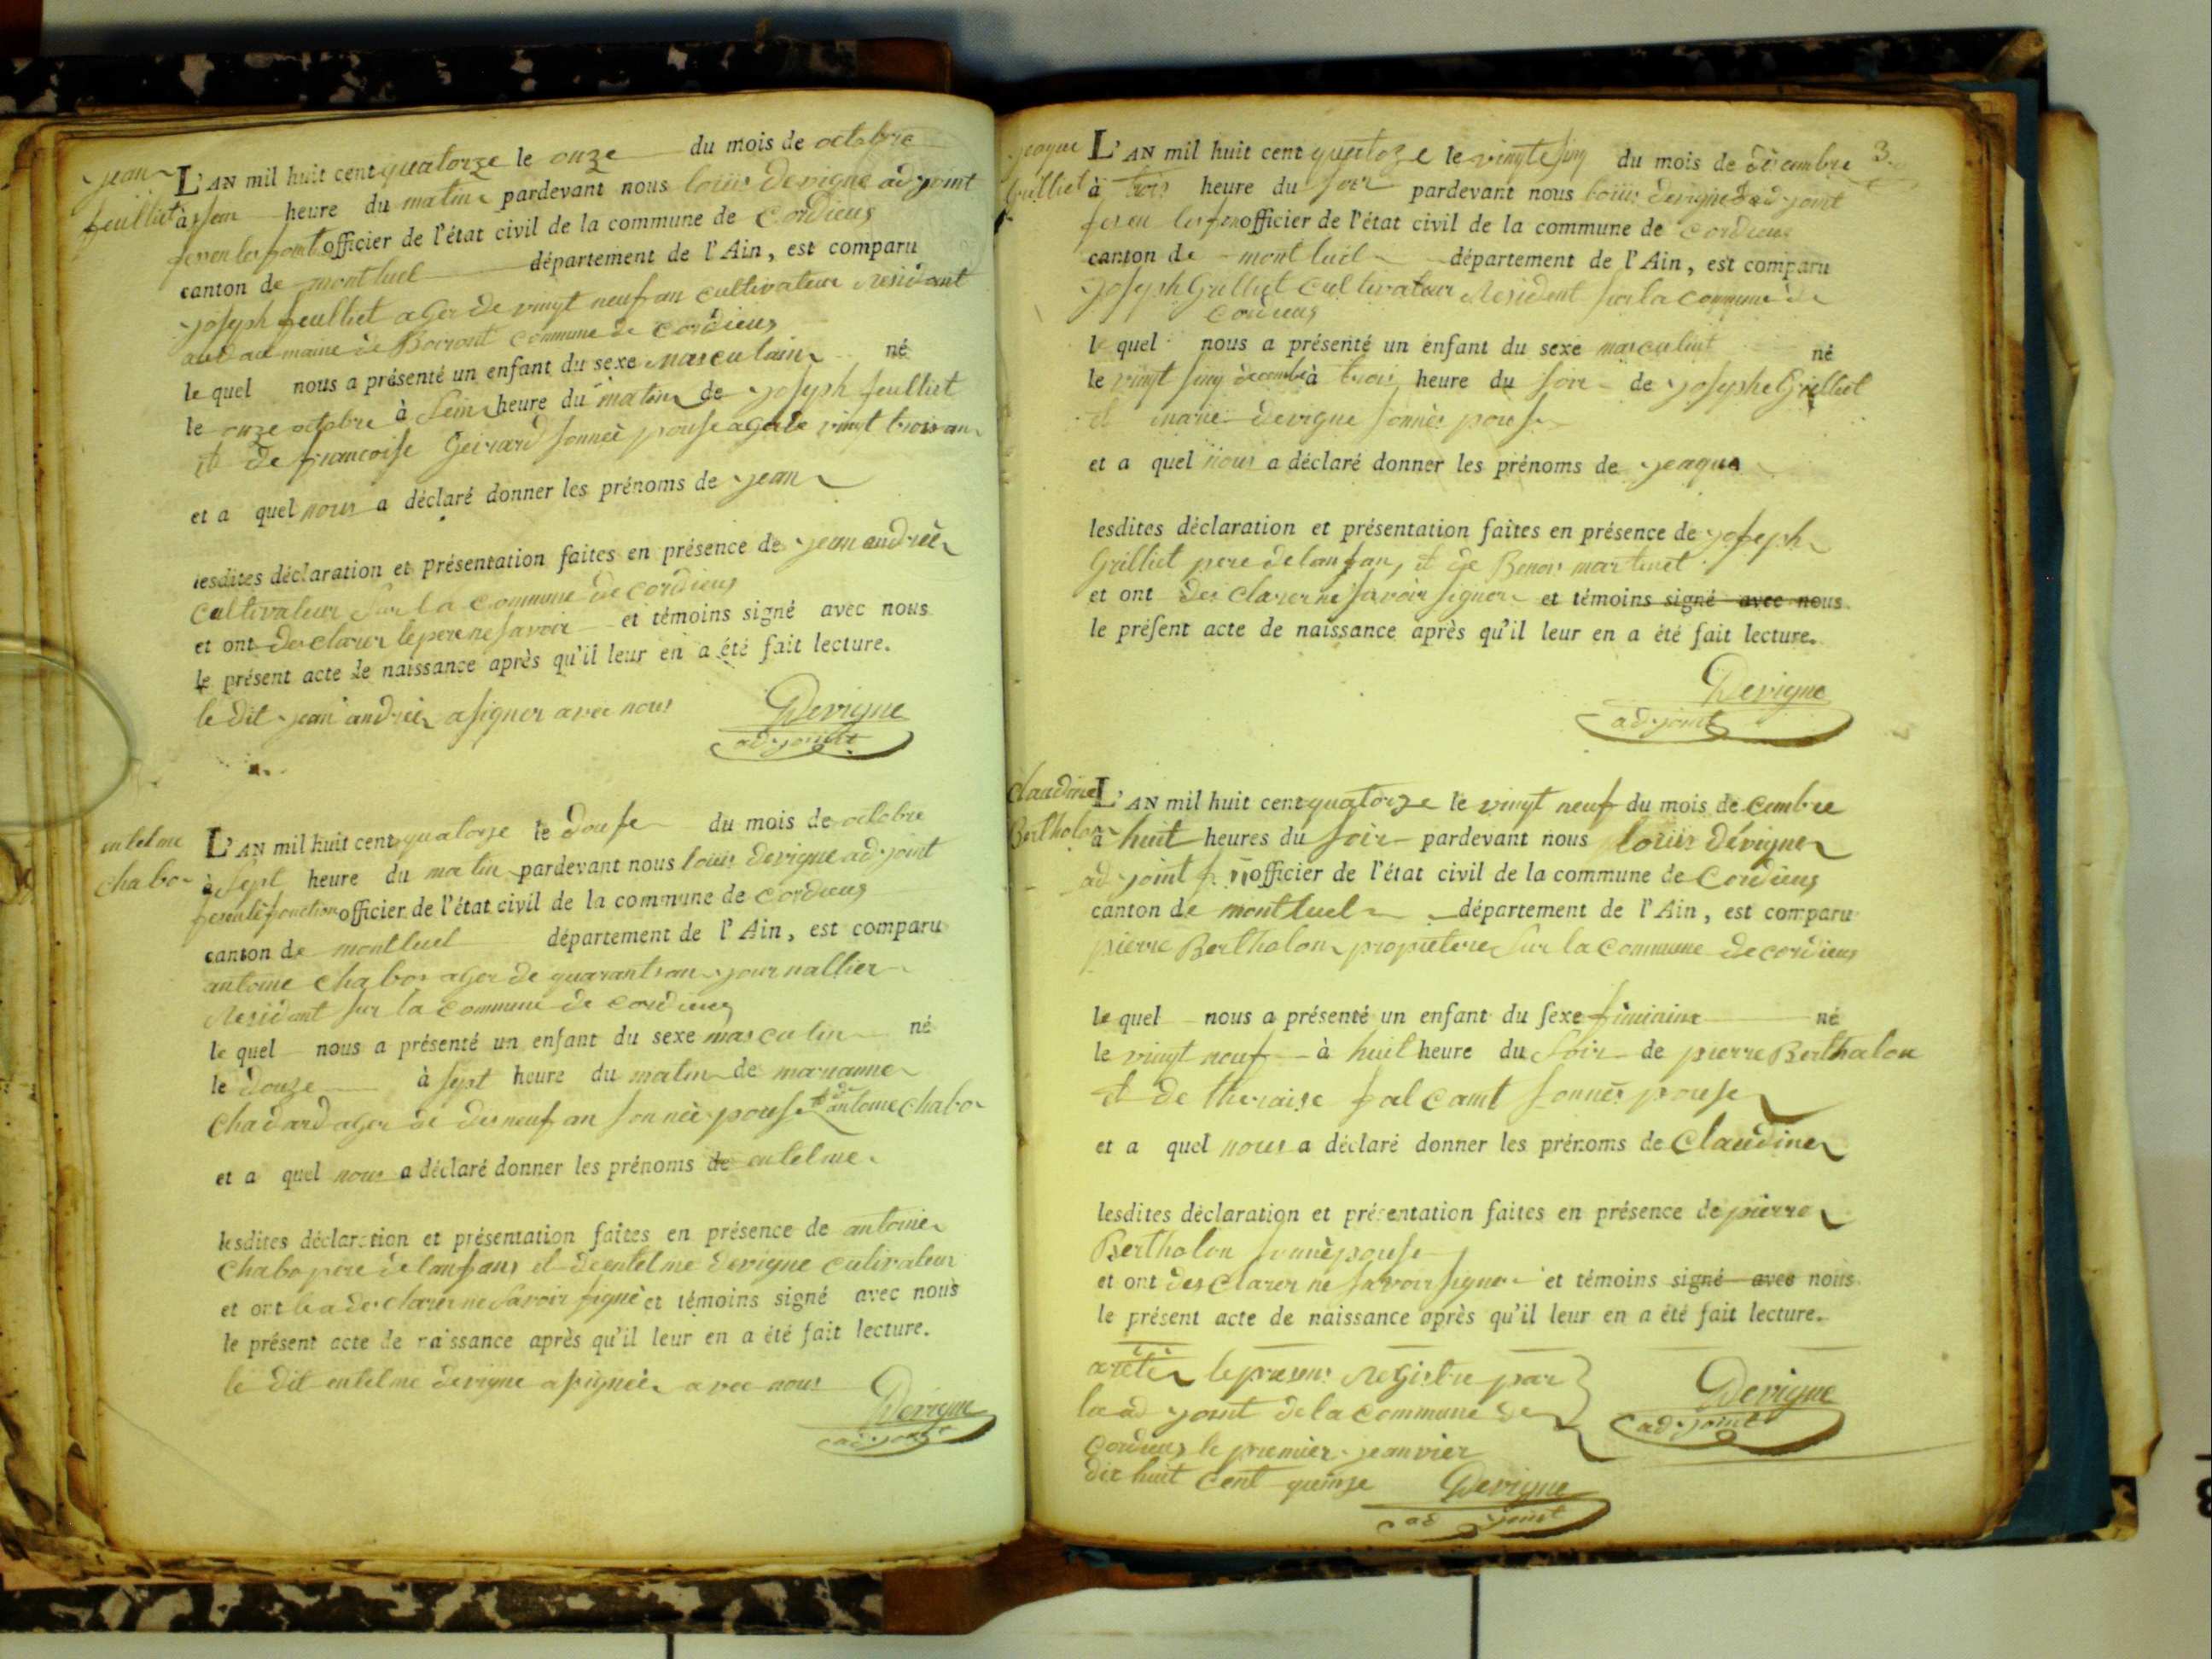 jean
feuilliet
L'AN mil huit cent quatorze le onze du mois de octobre
à heure du matin pardevant nous louis devigne adjoint
officier de l'état civil de la commune de Cordieux
canton de montluel département de l'Ain, est comparu
joseph feulliet ager de vingt neuf an cultivateur residant
commune de Cordieux
le quel nous a présenté un enfant du sexe masculain né
le onze octobre à heure du matin de joseph feulliet
et de francoise Geirard sonneè pouse agé de vingt trois an
et a quel nous a déclaré donner les prénoms de jean
lesdites déclaration et présentation faites en présence de jean andreè
Cultivateur Sur la commune de cordieux
et ont des clarer le pere ne savoir et témoins signé avec nous
le présent acte de naissance après qu'il leur en a été fait lecture.
le dit jean andreè a signer avec nous
Devigne
adjoint
entelme
chabo
L'AN mil huit cent quatorze le douse du mois de octobre
à sept heure du matin pardevant nous louis devigne adjoint
officier de l'état civil de la commune de cordieux
canton de montluel département de l'Ain, est comparu
antoine chabo ager de quarants an journallier
Residant sur la commune de cordieux
le quel nous a présenté un enfant du sexe masculin né
le douze à sept heure du matin de marianne
Chadard ager de des neuf an sonneè pouse et de antoine chabo
et a quel nous a déclaré donner les prénoms de entelme
lesdites déclaration et présentation faites en présence de antoine
Chabo pere de lanfans et de entelme devigne cultivateur
et ont des clarer ne savoir signè et témoins signé avec nous
le présent acte de naissance après qu'il leur en a été fait lecture.
le dit entelme devigne a signeè avec nous
Devigne
adjoint
3
jeaque
Grilliet
L'AN mil huit cent quatoze le vingt sinq du mois de décembre
à trois heure du soir pardevant nous louis devigne adjoint
officier de l'état civil de la commune de cordieux
canton de montluel département de l'Ain, est comparu
joseph Grilliet cultivateur Resident sur la commune de
cordieux
le quel nous a présenté un enfant du sexe masculint né
le vingt sinq decembre à trois heure du soir de josephe Grilliet
et marie devigne sonneè pouse
et a quel nous a déclaré donner les prénoms de jeaque
lesdites déclaration et présentation faites en présence de joseph
Grilliet pere de lanfan, et de Benoi martinet
et ont des clarer ne savoir signer et témoins signé avec nous
le présent acte de naissance après qu'il leur en a été fait lecture.
Devigne
adjoint
Claudine
Bertholon
L'AN mil huit cent quatorze le vingt neuf du mois de cembre
à huit heures du soir pardevant nous louis dévigne
adjoint officier de l'état civil de la commune de Cordieux
canton de montluel département de l'Ain, est comparu
pierre Bertholon propietere sur la commune de cordieux
le quel nous a présenté un enfant du sexe féminine né
le vingt neuf à huit heure du soir de pierre Bertholon
et de theraise falcamt sonneè pouse
et a quel nous a déclaré donner les prénoms de Claudine
lesdites déclaration et présentation faites en présence de pierre
Bertholon sonneè pouse
et ont des clarer ne savoir signer et témoins signé avec nous
le présent acte de naissance après qu'il leur en a été fait lecture.
arètè le presens Registre par
la ad joint de la commune de
Cordieux le premier jeanvier
dix huit cent quinze
Devigne
adjoint
Devigne
ad joint